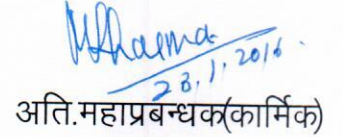 28.1.2016.
अति.महाप्रबन्धक(कार्मिक)